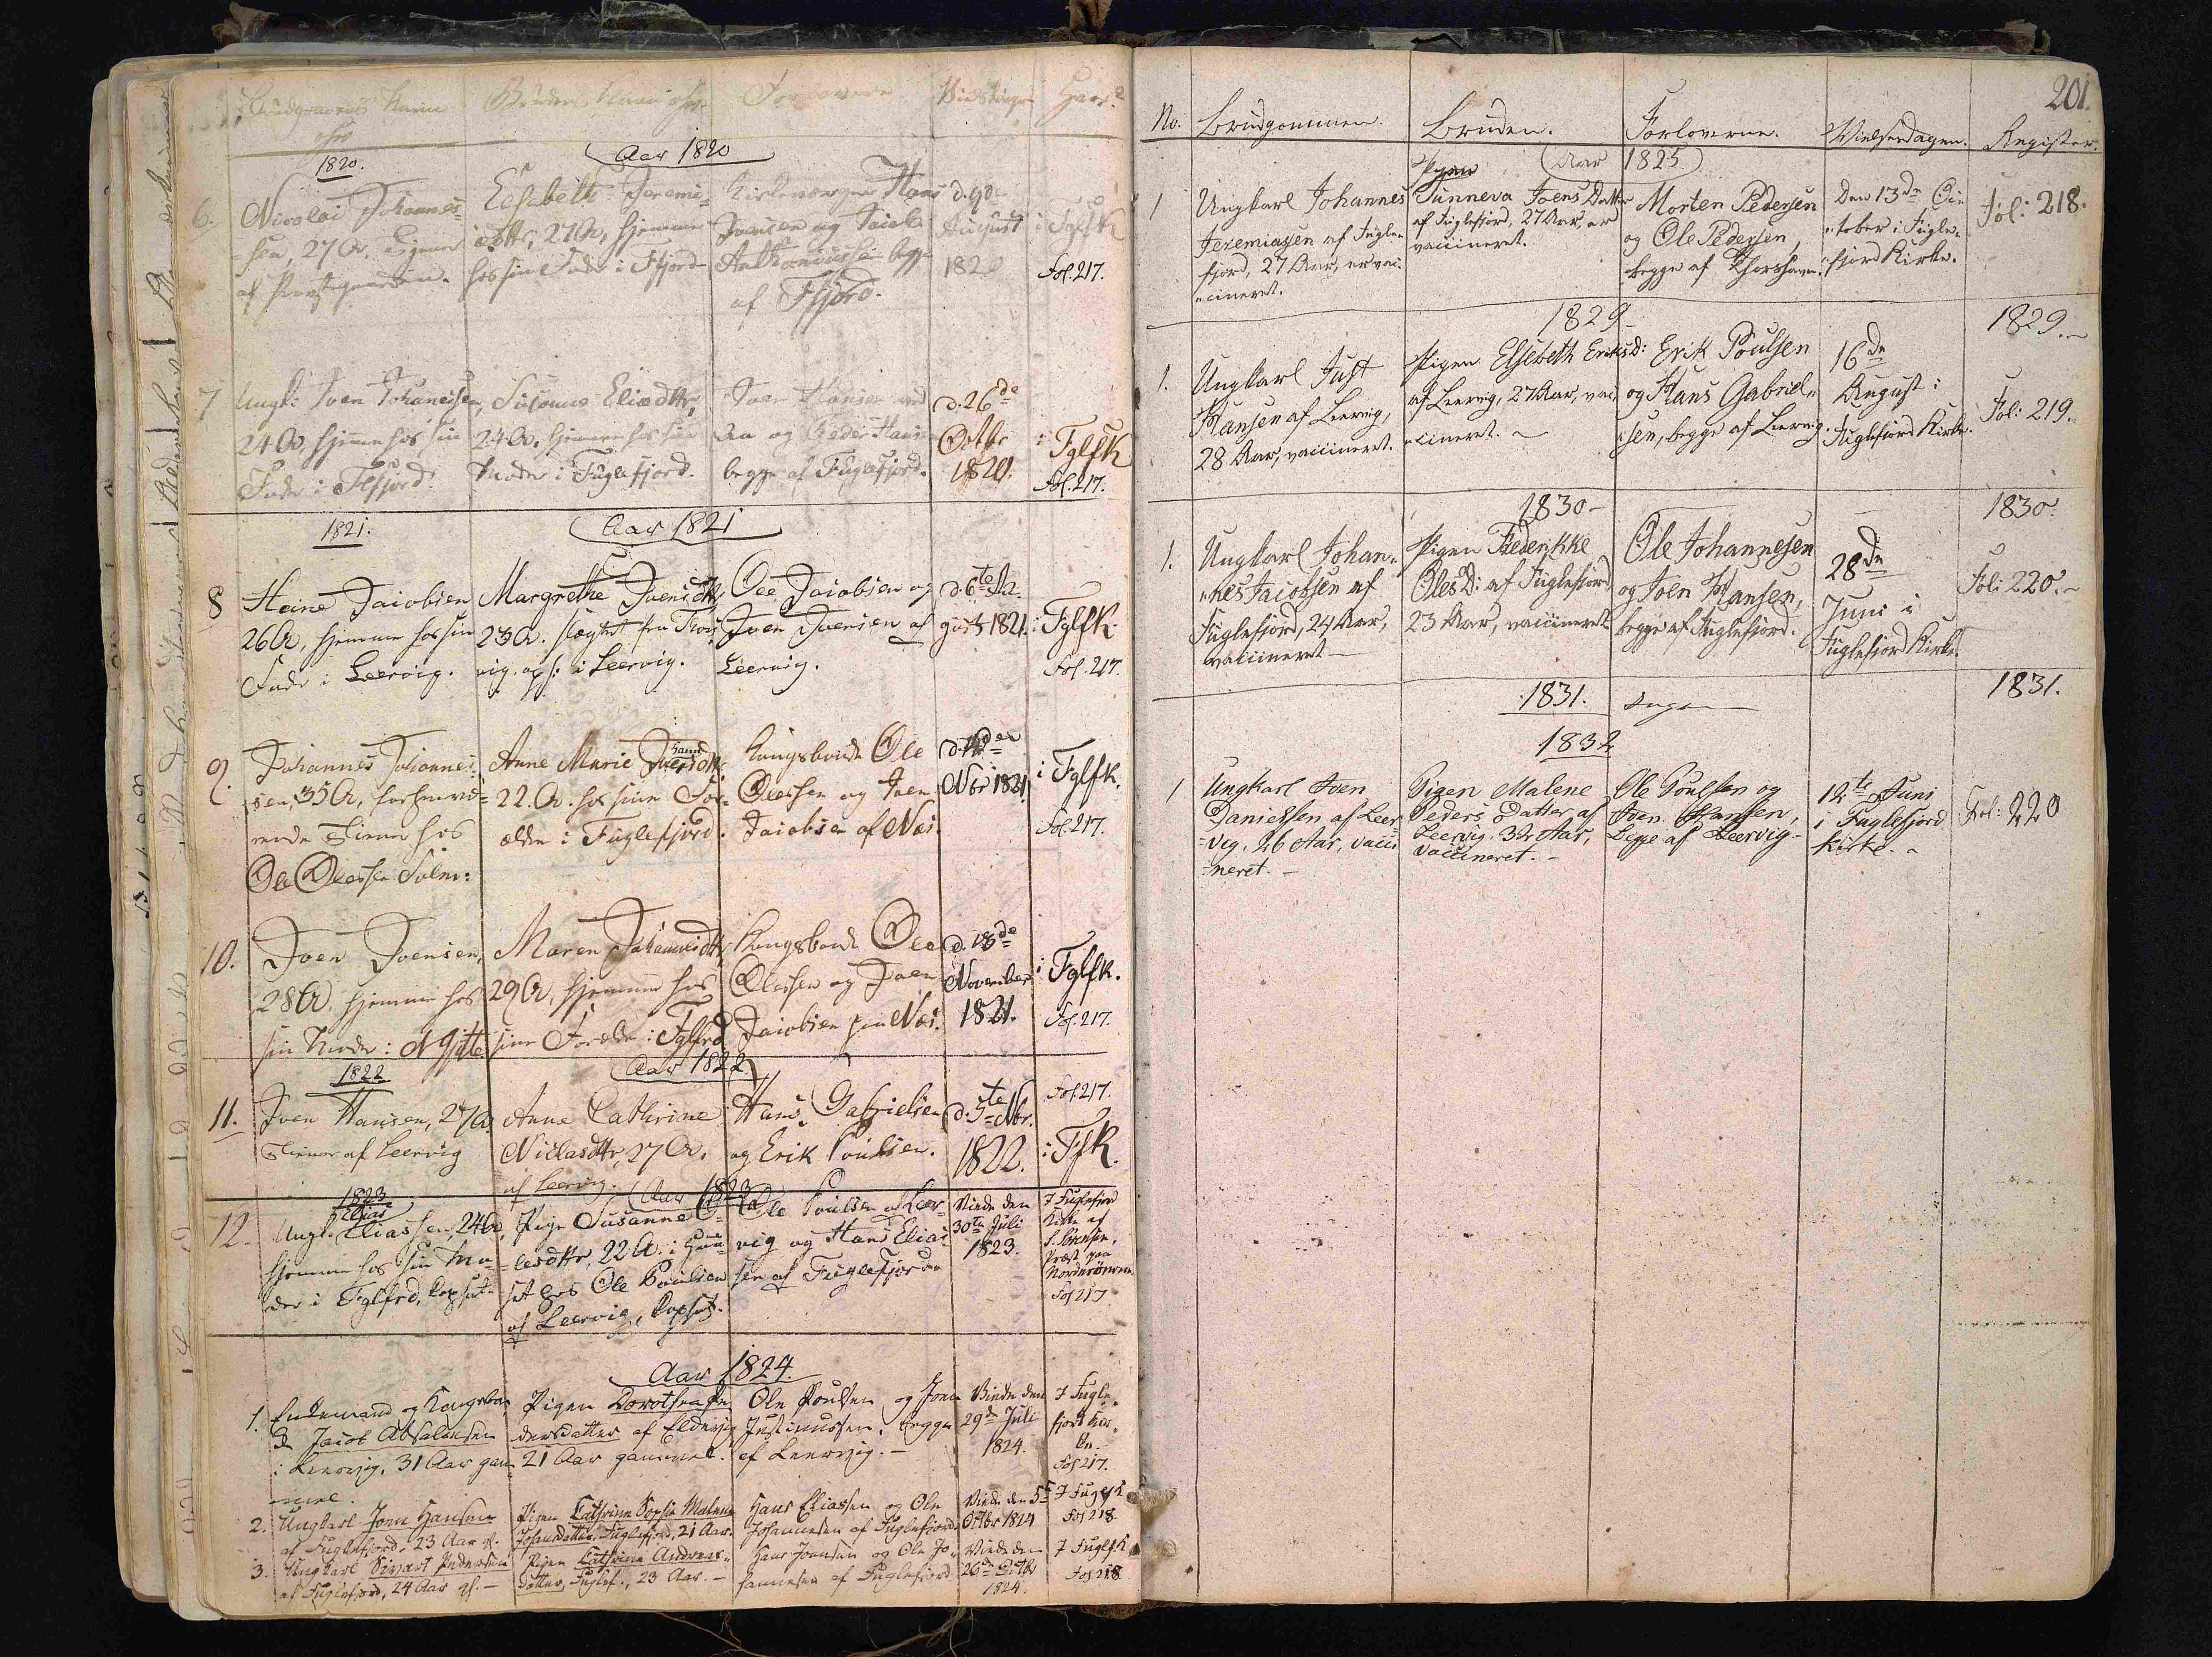 Brudgomens Navn
Brudens Navn
Forlovere
Hvor?
1820.
Aar 1820
6.
Nicolai Johannes-
sen, 27 A, tjener
af Præstegaarden.
Elsebeth Jeremi-
asdttr, 27 A, hjemme
hos sin Fader i Ffjord
Hans
Joensen og
begge
af Ffjord.
d. 9de
August
1820
i FglfK
Fol. 217.
7
Ungk: Joen Johanessen,
24 A, hjemme hos sin
Fader i Flfjord.
Susanne Eliædttr,
24 A, hjemme hos sin
Moder i Fuglefjord.
Joen Hansen
og Peder Hansen
begge af Fuglefjord.
d. 26de
Octbr
1820.
i FglfK
Fol. 217.
1821.
Aar 1821
8
Heine Jacobsen
26 A, hjemme hos sin
Fader i Leervig.
Margrethe Joensdttr,
23 A.
i Leervig.
Ole Jacobsen og
Joen Joensen af
Leervig.
d. 6te Au-
gust 1821.
i FglfK.
Fol. 217.
9.
Johannes Johannes-
sen, 35 A,
tjener hos
Ole Olessen
Anne Marie Joensdttr
22. A. hos sine For-
ældre i Fuglefjord.
Kongsbonde Ole
Olessen og Joen
Jacobsen af Næs.
Nbr 1821.
i FglfK.
Fol. 217.
10.
Joen Joensen,
28 A, hjemme hos
sin Moder i N Gjøte
Maren Johannesdttr,
29 A, hjemme hos
sine Forældre i Fglfrd
Kongsbonde Ole
Olessen og Joen
Jacobsen paa Næs.
d. 18de
November
1821.
i FglfK.
Fol. 217.
1822
Aar 1822
11.
Joen Hansen, 27 A.
tjener af Leervig
Anne Cathrine
Niclasdttr, 27 A.
af Leervig.
Hans Gabrielsen
og Erik Poulsen.
d. 5te Nbr.
1822.
Fol. 217.
i FfK.
1823
Aar 1823
12.
Ungk. Eliassen, 24 A,
hjemme hos sin Mo-
der i Fglfrd, kopsat.
Pige Susanne O-
lesdttr, 22 A.
hos Ole Poulsen
af Leervig, kopsat.
Ole Poulsen af Leer-
vig og Hans Elias-
sen af Fuglefjord
Viede den
30te Juli
1823.
I Fuglefjord
Kirke af
S. Sørensen,
Præst paa
Norderöerne
Fol 217
Aar 1824.
1. Enkemand og Kongsbon-
de Jacob Absalonsen
i Leervig, 31 Aar gam-
mel.
Pigen Dorothea Pe-
dersdatter af Eldevig
21 Aar gammel.
Ole Poulsen og Joen
Justinussen, begge
af Leervig. —
Viede den
29de Juli
1824.
I Fugle-
fjord Kir-
ke.
Fol 217.
2. Ungkarl Joen Hansen
af Fuglefjord, 23 Aar gl.
Pigen Cathrine Sophie Malene
Johansdatter, Fuglefjord, 21 Aar.
Hans Eliassen og Ole
Johannesen af Fuglefjord.
Viede den 5te
Octbr 1824
I FuglfK
Fol 218
3. Ungkarl Sivart Pedersen
af Fuglefjord, 24 Aar gl. —
Pigen Cathrine Andreas-
datter, Fuglef., 23 Aar. —
Hans Joensen og Ole Jo-
hannesen af Fuglefjord
Viede den
26de Octbr
1824.
I FuglfK
Fol 218
201.
No.
Brudgommen.
Bruden.
Forloverne.
Vielsesdagen.
Register.
Aar 1825.
1
Ungkarl Johannes
Jeremiassen af Fugle-
fjord, 27 Aar, er vac-
cineret.
Pigen
Sunneva Joens Datter
af Fuglefjord, 27 Aar, er
vaccineret.
Morten Pedersen
og Ole Pedersen,
begge af Thorshavn.
Den 13de Oc-
tober i Fugle-
fjord Kirke.
Fol: 218.
1829
1829.
1.
Ungkarl Just
Hansen af Leervig,
28 Aar, vaccineret.
Pigen Elsebeth EriksD:
af Leervig, 27 Aar, vac-
cineret.
Erik Poulsen
og Hans Gabriel-
sen, begge af Leervig.
16de
August i
Fuglefjord Kirke.
Fol: 219.
1830
1830.
1.
Ungkarl Johan-
nes Jacobsen af
Fuglefjord, 24 Aar,
vaccineret
Pigen Frederikke
OlesD: af Fuglefjord
23 Aar, vaccineret
Ole Johannesen
og Joen Hansen,
begge af Fuglefjord.
28de
Juni i
Fuglefjord Kirke.
Fol: 220.
1831. Ingen
1831.
1832
1
Ungkarl Joen
Danielsen af Leer-
vig. 26 Aar, vacci-
neret.
Pigen Malene
Peders Datter af
Leervig 32 Aar,
vaccineret.
Ole Poulsen og
Joen Hansen,
begge af Leervig
12te Juni
i Fuglefjord
Kirke.
Fol: 220